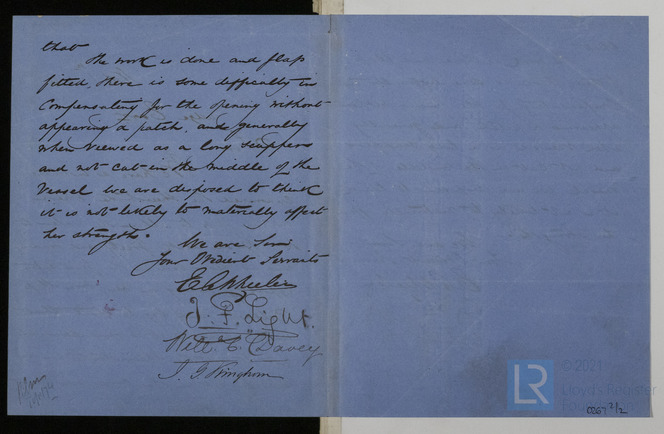 that
the work is done and flap
fitted, there is some difficulty in
Compensating for the opening without
appearing a patch, and generally
when viewed as a long scuppers
and not cut in the middle of the
Vessel we are disposed to think
it is not likely to materially affect
her strength.
We are Sirs
Your Obedient Servants
J. F. Light.
Will. C. Davey
LR
© 2021
Lloyd's Register
0267 2/2